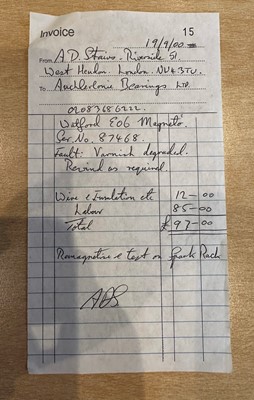 Invoice 15
19/9/00
From A.D. Straws. Riverside St.
West Hendon. London. NW4 3TU.
To Auchterlonie Bearings LTD.
02083686222.
Watford E06 Magneto.
Ser. No. 87468.
Fault: Varnish degraded.
Rewind as required.
Wire & Insulation etc 12-00
Labour 85-00
Total £97-00
Remagnetise & test on Spark Rack
ADS